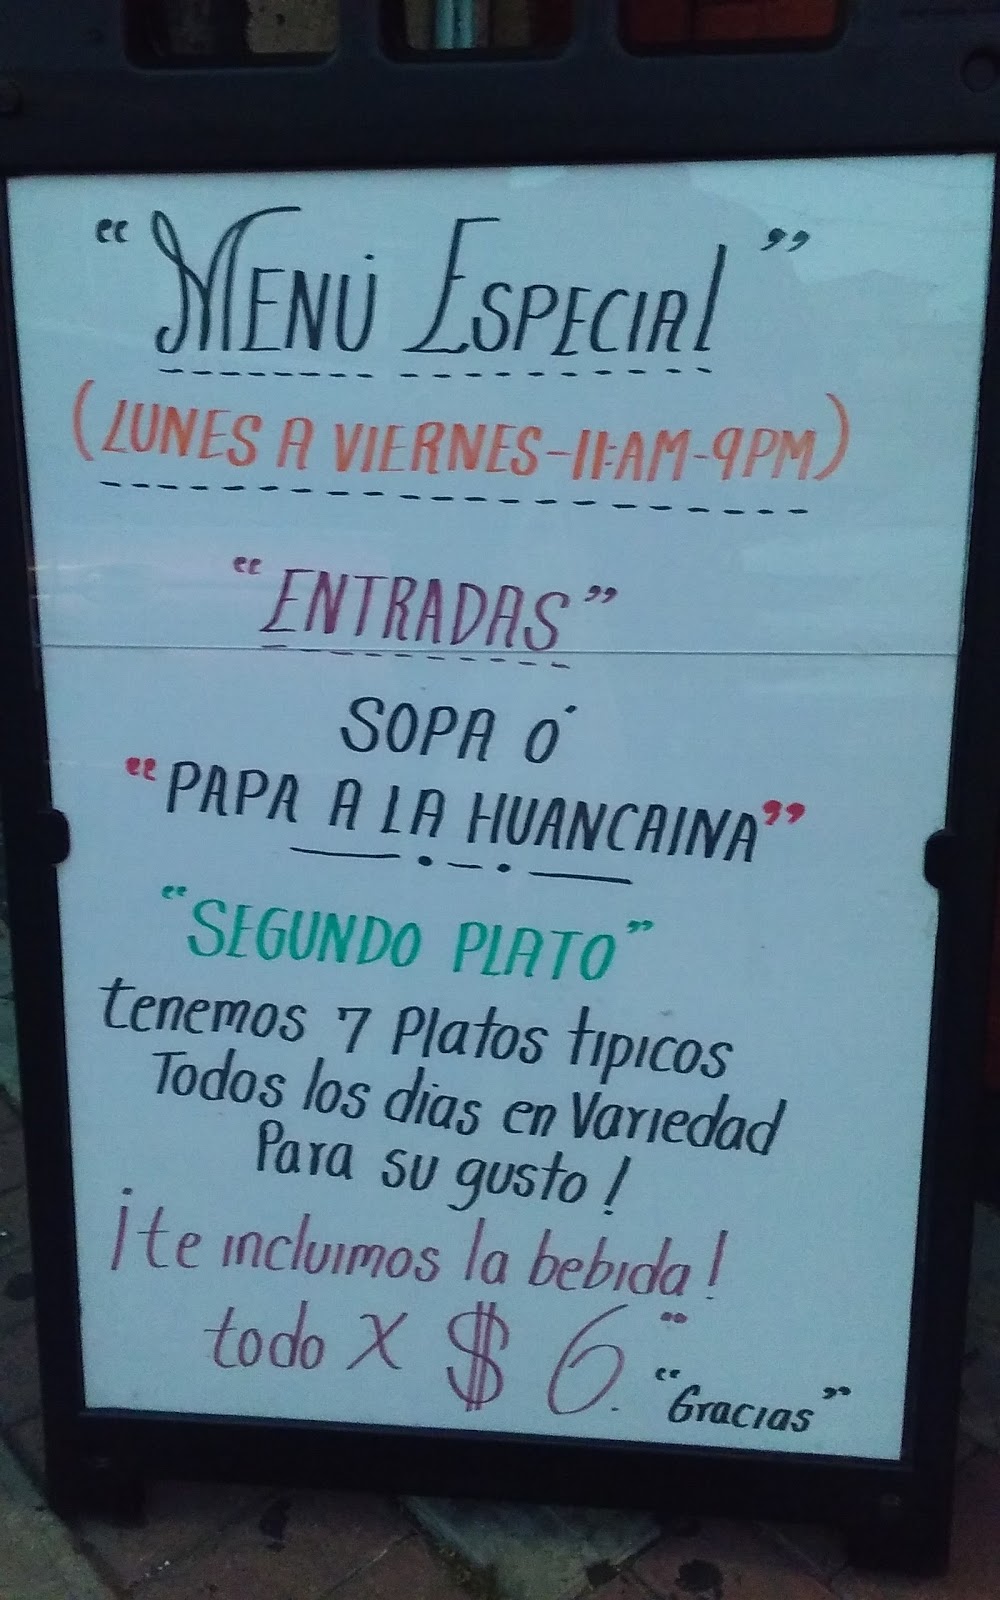 "MENÚ ESPECIAl"
(LUNES A VIERNES-11:AM-9PM)
"ENTRADAS"
SOPA Ó
"PAPA A LA HUANCAINA"
"SEGUNDO PLATO"
tenemos 7 Platos tipicos
Todos los dias en Variedad
Para su gusto!
¡te incluimos la bebida!
todo X $ 6.00
"Gracias"